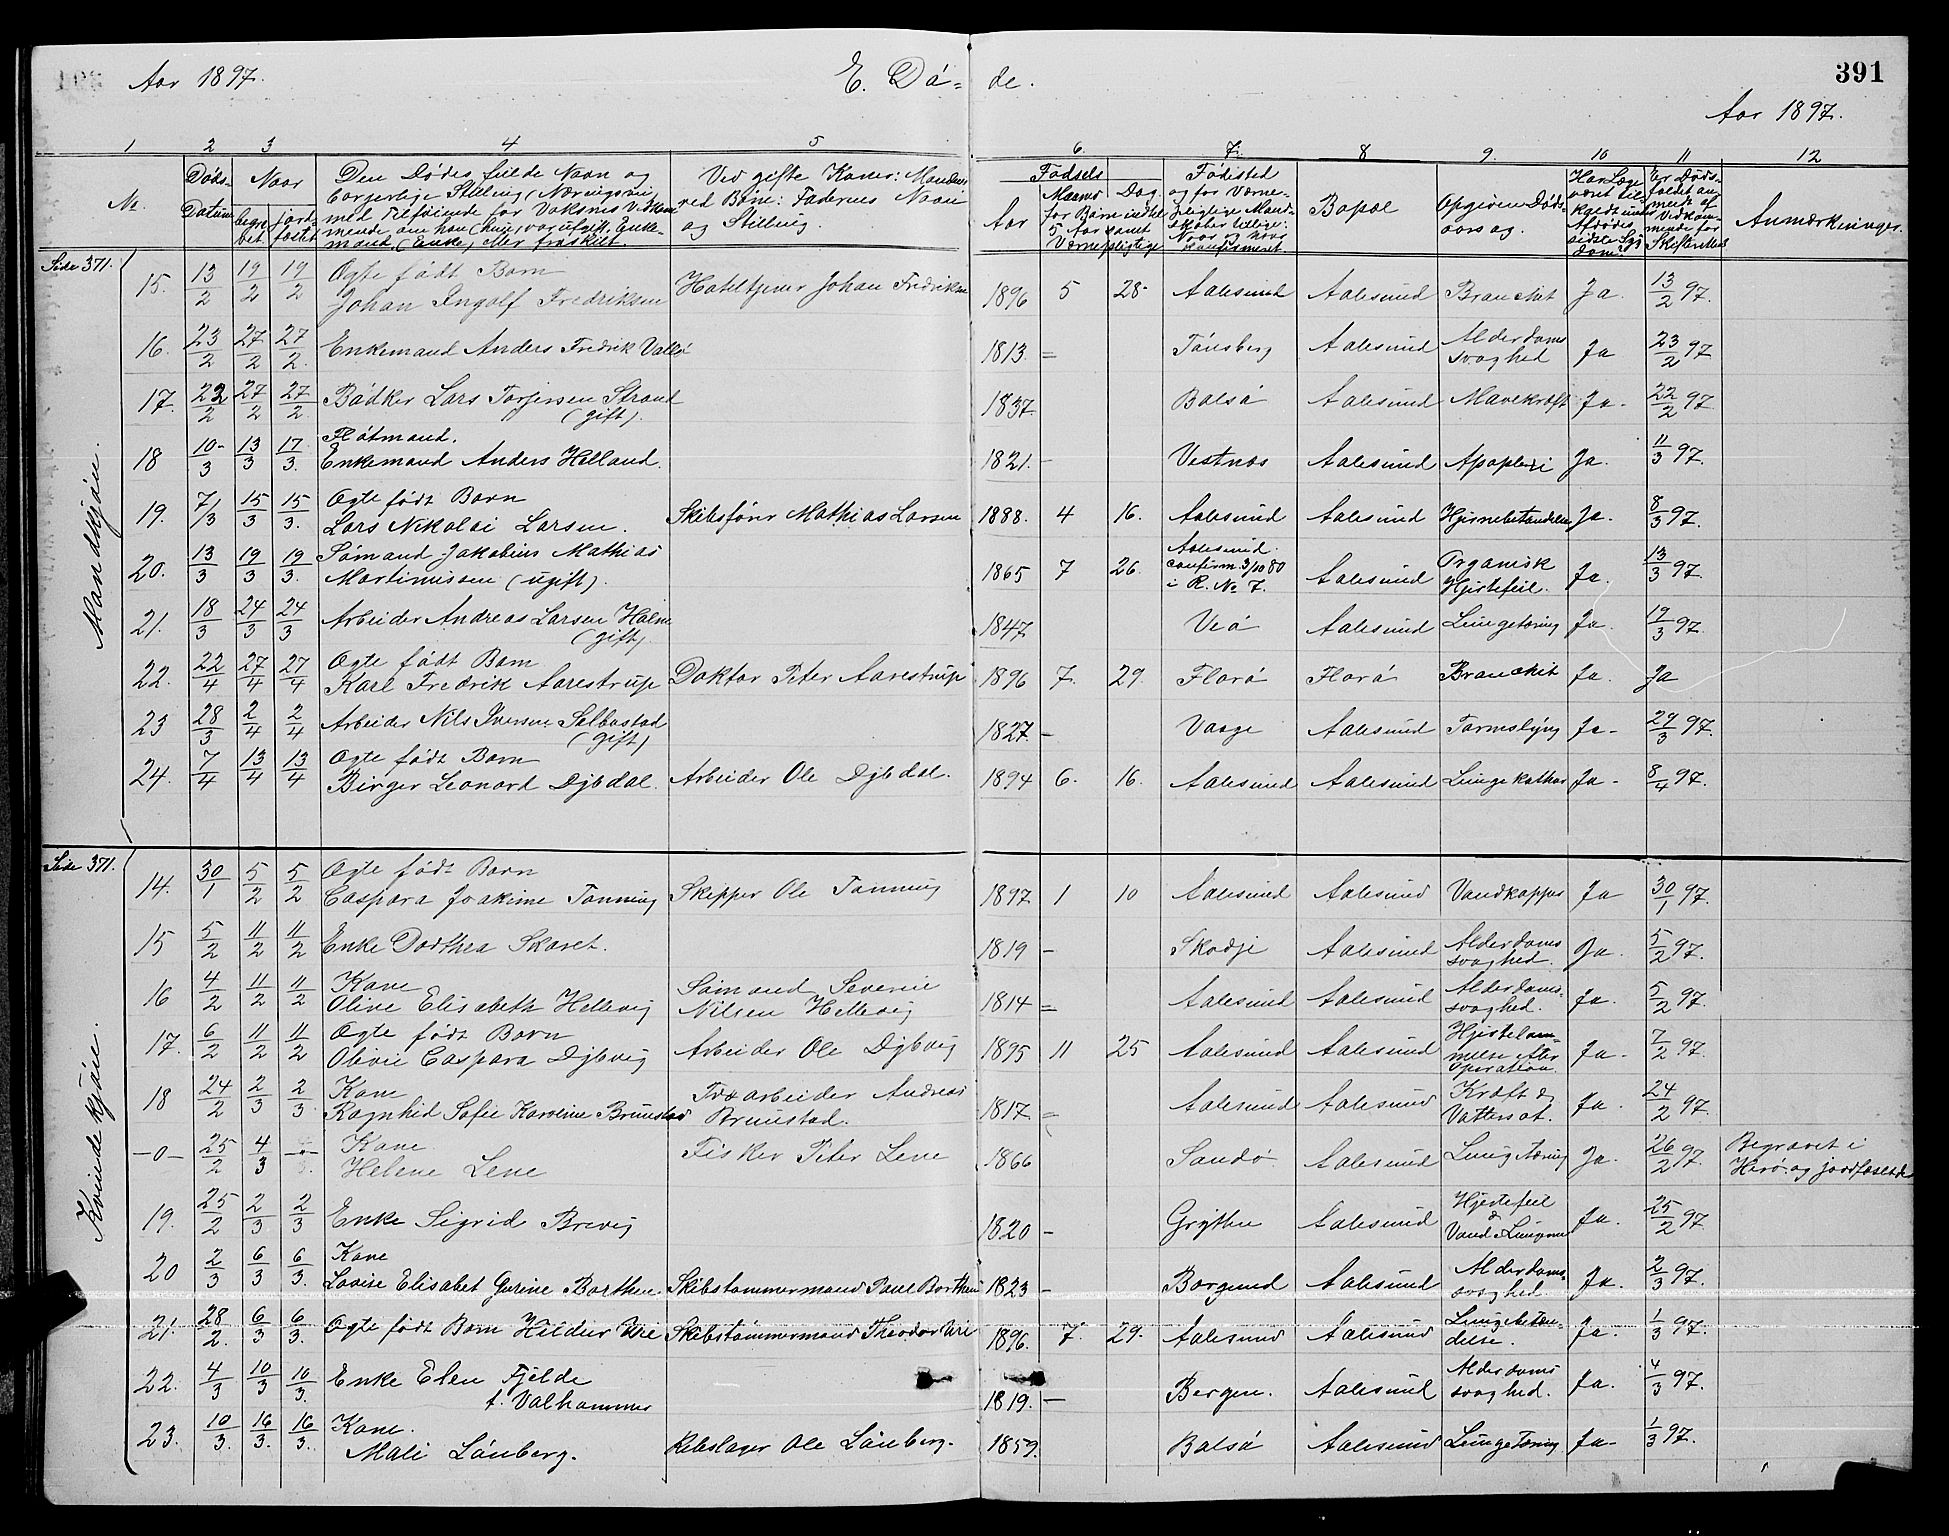 Aar 1897. E. Dö- de. 391
Aar 1897.
1 2 3 4 5 6. 7. 8 9. 10 11 12
№.
Döds-
Datum
Naar
begra-
vet
jord-
fæstet
Den Dödes fulde Navn og
borgerlige Stilling (Næringsvei)
med Tilföiende for Voksnes Vedkom-
mende, om han (hun) var ugift, Enke-
mand (Enke), eller fraskilt.
Ved gifte Koner: Mandens
ved Börn: Faderens Navn
og Stilling.
Födsels
Aar
Maaned
Dag
for Börn indtil
5 Aar samt
Værnepligtige
Födested
og for Værne-
pligtige Mand-
skaber tillige:
Naar og hvor
konfirmeret.
Bopæl
Opgiven Döds-
aarsag.
Har Læge
været til-
kaldt under
Afdödes
sidste Syg-
dom?
Er Döds-
faldet an-
meldt af
Vedkom-
mende for
Skifteretten
Anmærkninger.
Mandkjön.
Side 371.
15. 13/2 19/2 19/2 Ægte födt Barn
Johan Ingolf Fredriksen Hoteltjener Johan Fredriksen 1896 5 28 Aalesund Aalesund Bronchit Ja. 13/2 97.
16. 23/2 27/2 27/2. Enkemand Anders Fredrik Vallö 1813. = Tönsberg Aalesund Alderdoms
svaghed Ja 23/2 97
17. 22/2 27/2 27/2. Bödker Lars Torjersen Strand
(gift). 1837. Bolsö Aalesund Mavekræft Ja. 22/2 97.
18 10/3 13/3 17/3. Flötmand.
Enkemand Anders Helland. 1821. - Vestnes Aalesund Apoplexi Ja. 11/3 97.
19. 7/3 15/3 15/3. Ægte födt Barn
Lars Nikolai Larsen. Skibsförer Mathias Larsen 1888. 4 16. Aalesund Aalesund Hjernebetændelse Ja. 8/3 97.
20. 13/3 19/3 19/3. Sömand Jakobinus Mathias
Martinussen (ugift). 1865 7 26. Aalesund.
confirm. 3/10 80
i R. № 7. Aalesund Organisk
Hjertefeil. Ja. 13/3 97.
21. 18/3 24/3 24/3 Arbeider Andreas Larsen Holm
(gift) 1847 Veö Aalesund Lungetæring Ja. 19/3 97.
22. 22/4 27/4 27/4 Ægte födt Barn
Karl Fredrik Aarestrup Doktor Peter Aarestrup 1896 7. 29. Florö Florö Bronchit Ja. Ja
23 28/3 2/4 2/4 Arbeider Nils Iversen Selbostad
(gift) 1827. - Vaage Aalesund Tarmslyng Ja- 29/3 97.
24. 7/4 13/4 13/4 Ægte födt Barn
Birger Leonard Dybdal. Arbeider Ole Dybdal. 1894 6. 16. Aalesund Aalesund Lungekathar Ja- 8/4 97.
Kvindekjön.
Side 371.
14. 30/1 5/2 5/2 Ægte födt Barn
Caspara Joakime Tonning Skipper Ole Tonning 1897 1 10 Aalesund Aalesund Vandkopper Ja 30/1 97.
15 5/2 11/2 11/2 Enke Dorthea Skaret. 1819 - Skodje Aalesund Alderdoms
svaghed. Ja. 5/2 97.
16 4/2 11/2 11/2 Kone
Oline Elisabeth Hellevig Sömand Severin
Nilsen Hellevig 1814 = Aalesund Aalesund Alderdoms-
svaghed. Ja. 5/2 97.
17. 6/2 11/2 11/2 Ægte födt Barn
Olivie Caspara Dybvig Arbeider Ole Dybvig 1895 11 25 Aalesund Aalesund Hjertelam-
melse efter
Operation Ja. 7/2 97.
18 24/2 2/3 2/3. Kone
Ragnhild Sofie Karoline Brunstad Træarbeider Andreas
Brunstad. 1817 = Aalesund Aalesund Kræft og
Vattersot. Ja. 24/2 97.
-0- 25/2 4/3 -"- Kone
Helene Lene Fisker Peter Lene 1866 Sandö Aalesund Lungetæring Ja. 26/2 97. Begravet i
Herö og jordfæstet
19. 25/2 2/3. 2/3 Enke Sigrid Brevig 1820 - Grytten Aalesund Hjertefeil
&
Vand i Lungerne Ja. 25/2 97
20 2/3 6/3 6/3. Kone
Lovise Elisabet Gurine Barthen Skibstømmermand Paul Barthen 1823 - Borgund Aalesund Alderdoms-
svaghed. Ja. 2/3 97.
21. 28/2. 6/3 6/3. Ægte födt Barn Hildur Wie Skibstømmermand Theodor Wie 1896. 7. 29. Aalesund Aalesund Lungebetæn-
delse. Ja. 1/3 97.
22. 4/3 10/3 10/3. Enke Elen Fjelde
f. Valhammer 1819. - Bergen. Aalesund Alderdoms
svaghed. Ja. 4/3 97.
23. 10/3. 16/3. 16/3. Kone.
Mali Lönberg. Rebslager Ole Lönberg. 1859. Bolsö Aalesund Lungetæring Ja- 1/3 97.